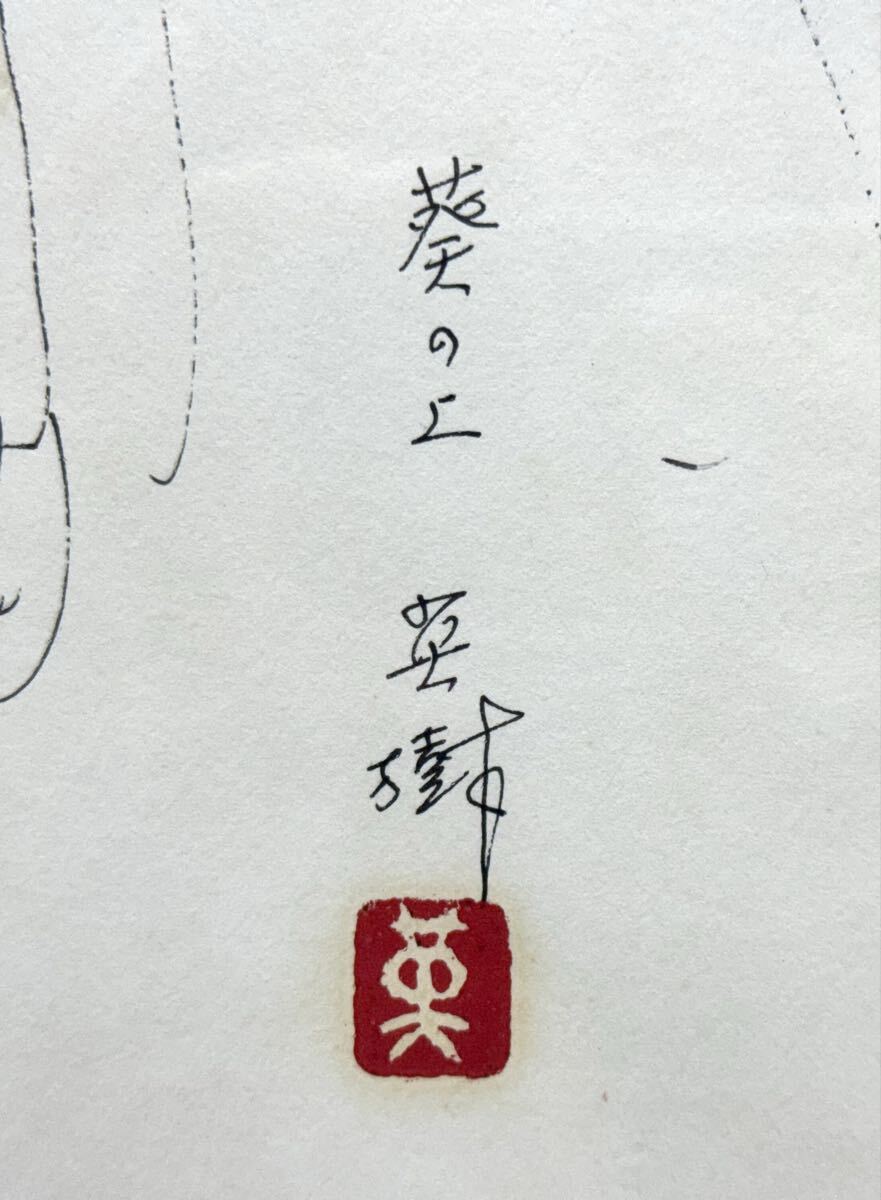 葵の上
英樹
英